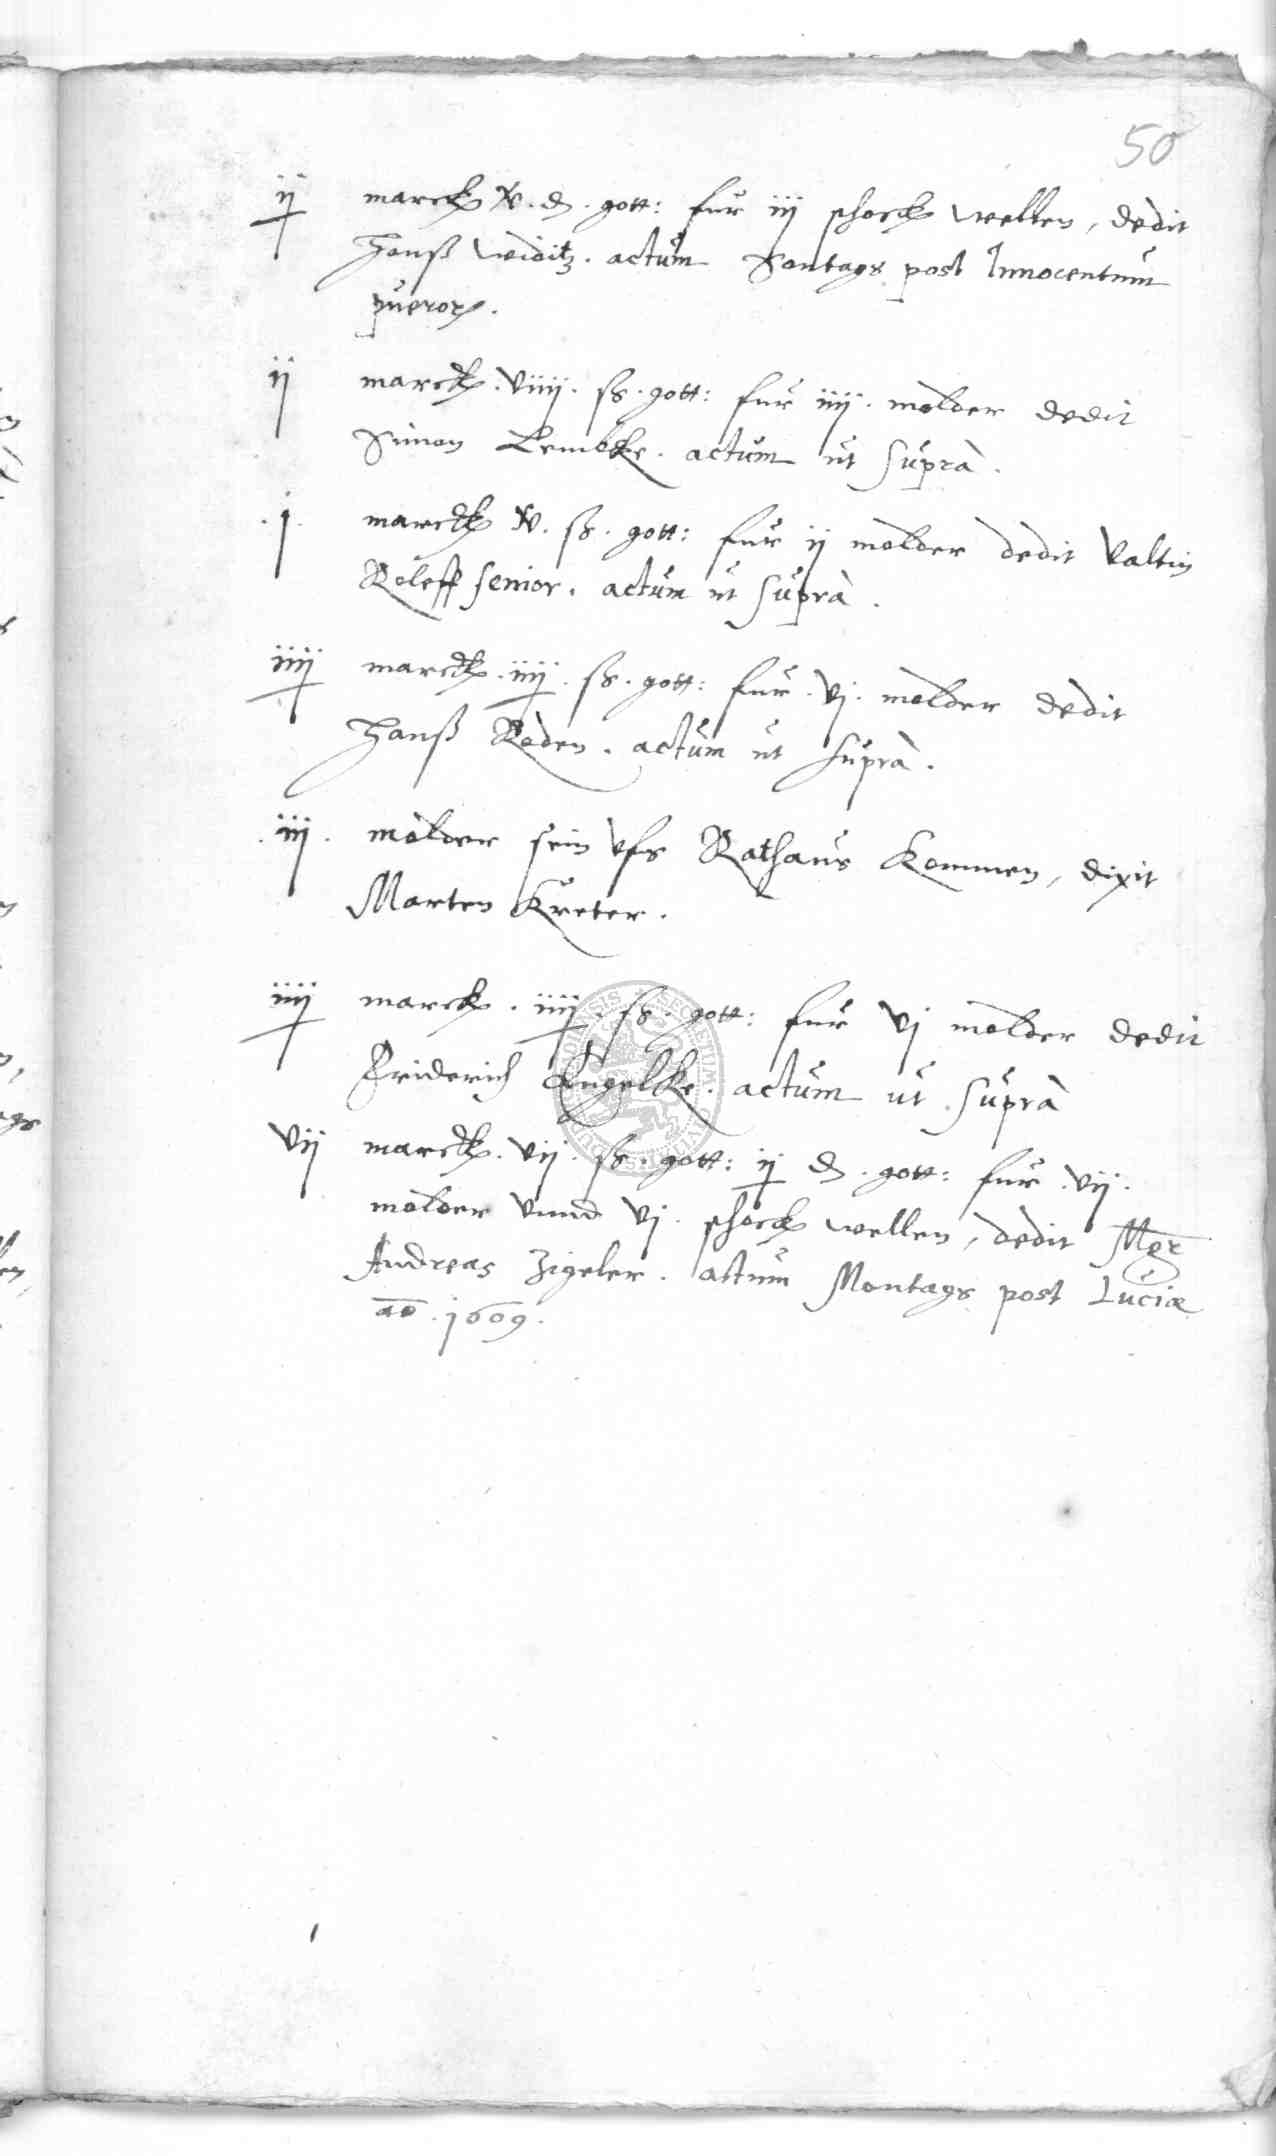 50
ij marck x. d. gott: fur iij schock wellen, dedit
Hanß Weiditz. actum Sontags post Innocentum
pueror.
ij marck. viiij. ß. gott: fur iiij. molder dedit
Simon Lembke. actum ut supra.
.j. marck x. ß. gott: fur ij molder dedit Valtin
Roleff senior. actum ut supra.
iiij marck. iiij. ß. gott: fur. vj. molder dedit
Hanß Roden. actum ut supra.
.iij. molder sein vfs Rathaus kommen, dixit
Marten Kreter.
iiij marck. iiij. ß. gott: fur vj molder dedit
Friderich Engelke. actum ut supra
vij marck. vij. ß. gott: ij d. gott: fur. vij.
molder vnnd vj. schock wellen, dedit Mgr
Andreas Zigeler. actum Montags post Luciæ
ao. 1609.